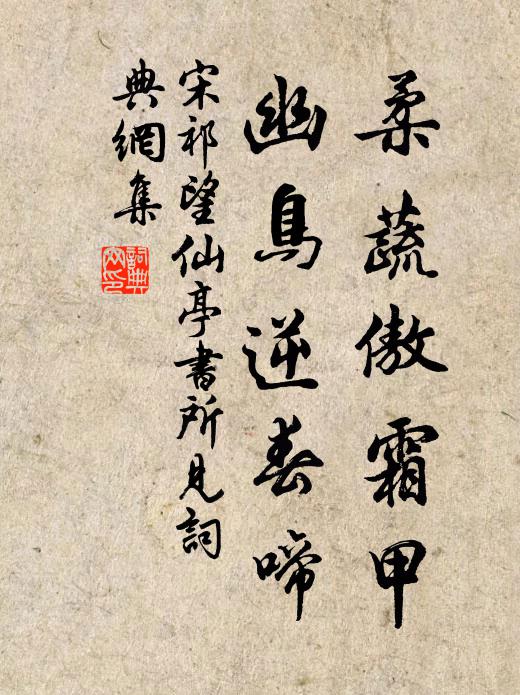 柔蔬傲霜甲
幽鳥逆春啼
宋祁望仙亭書所見詞
典網集
詞典
网印